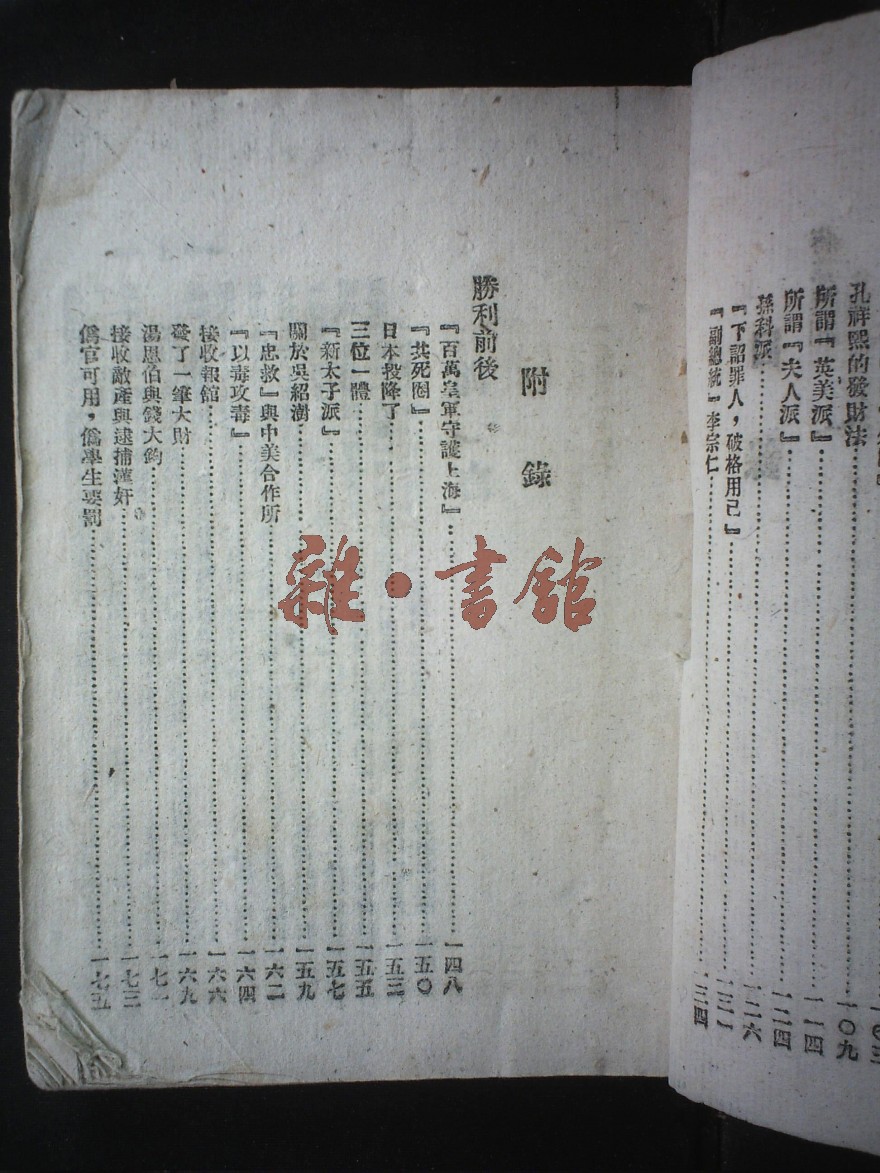 孔祥熙的發財法……一〇九
所謂『英美派』……一一四
所謂『夫人派』……一二四
孫科派……一二六
『下詔罪人，破格用己』……一三一
『副總統』李宗仁……一三四
附錄
勝利前後
『百萬皇軍守護上海』……一四八
『共死圈』……一五〇
日本投降了……一五三
三位一體……一五五
『新太子派』……一五七
關於吳紹澍……一五九
『忠救』與中美合作所……一六二
『以毒攻毒』……一六四
接收報館……一六六
發了一筆大財……一六九
湯恩伯與錢大鈞……一七一
接收敵產與逮捕漢奸……一七三
僞官可用，僞學生要罰……一七五
雜·書館